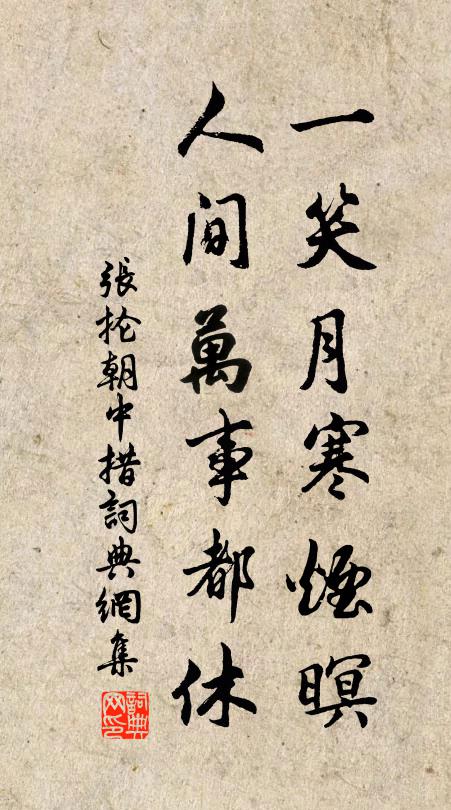 一笑月寒煙暝
人間萬事都休
張抡朝中措詞典網集
詞典网印